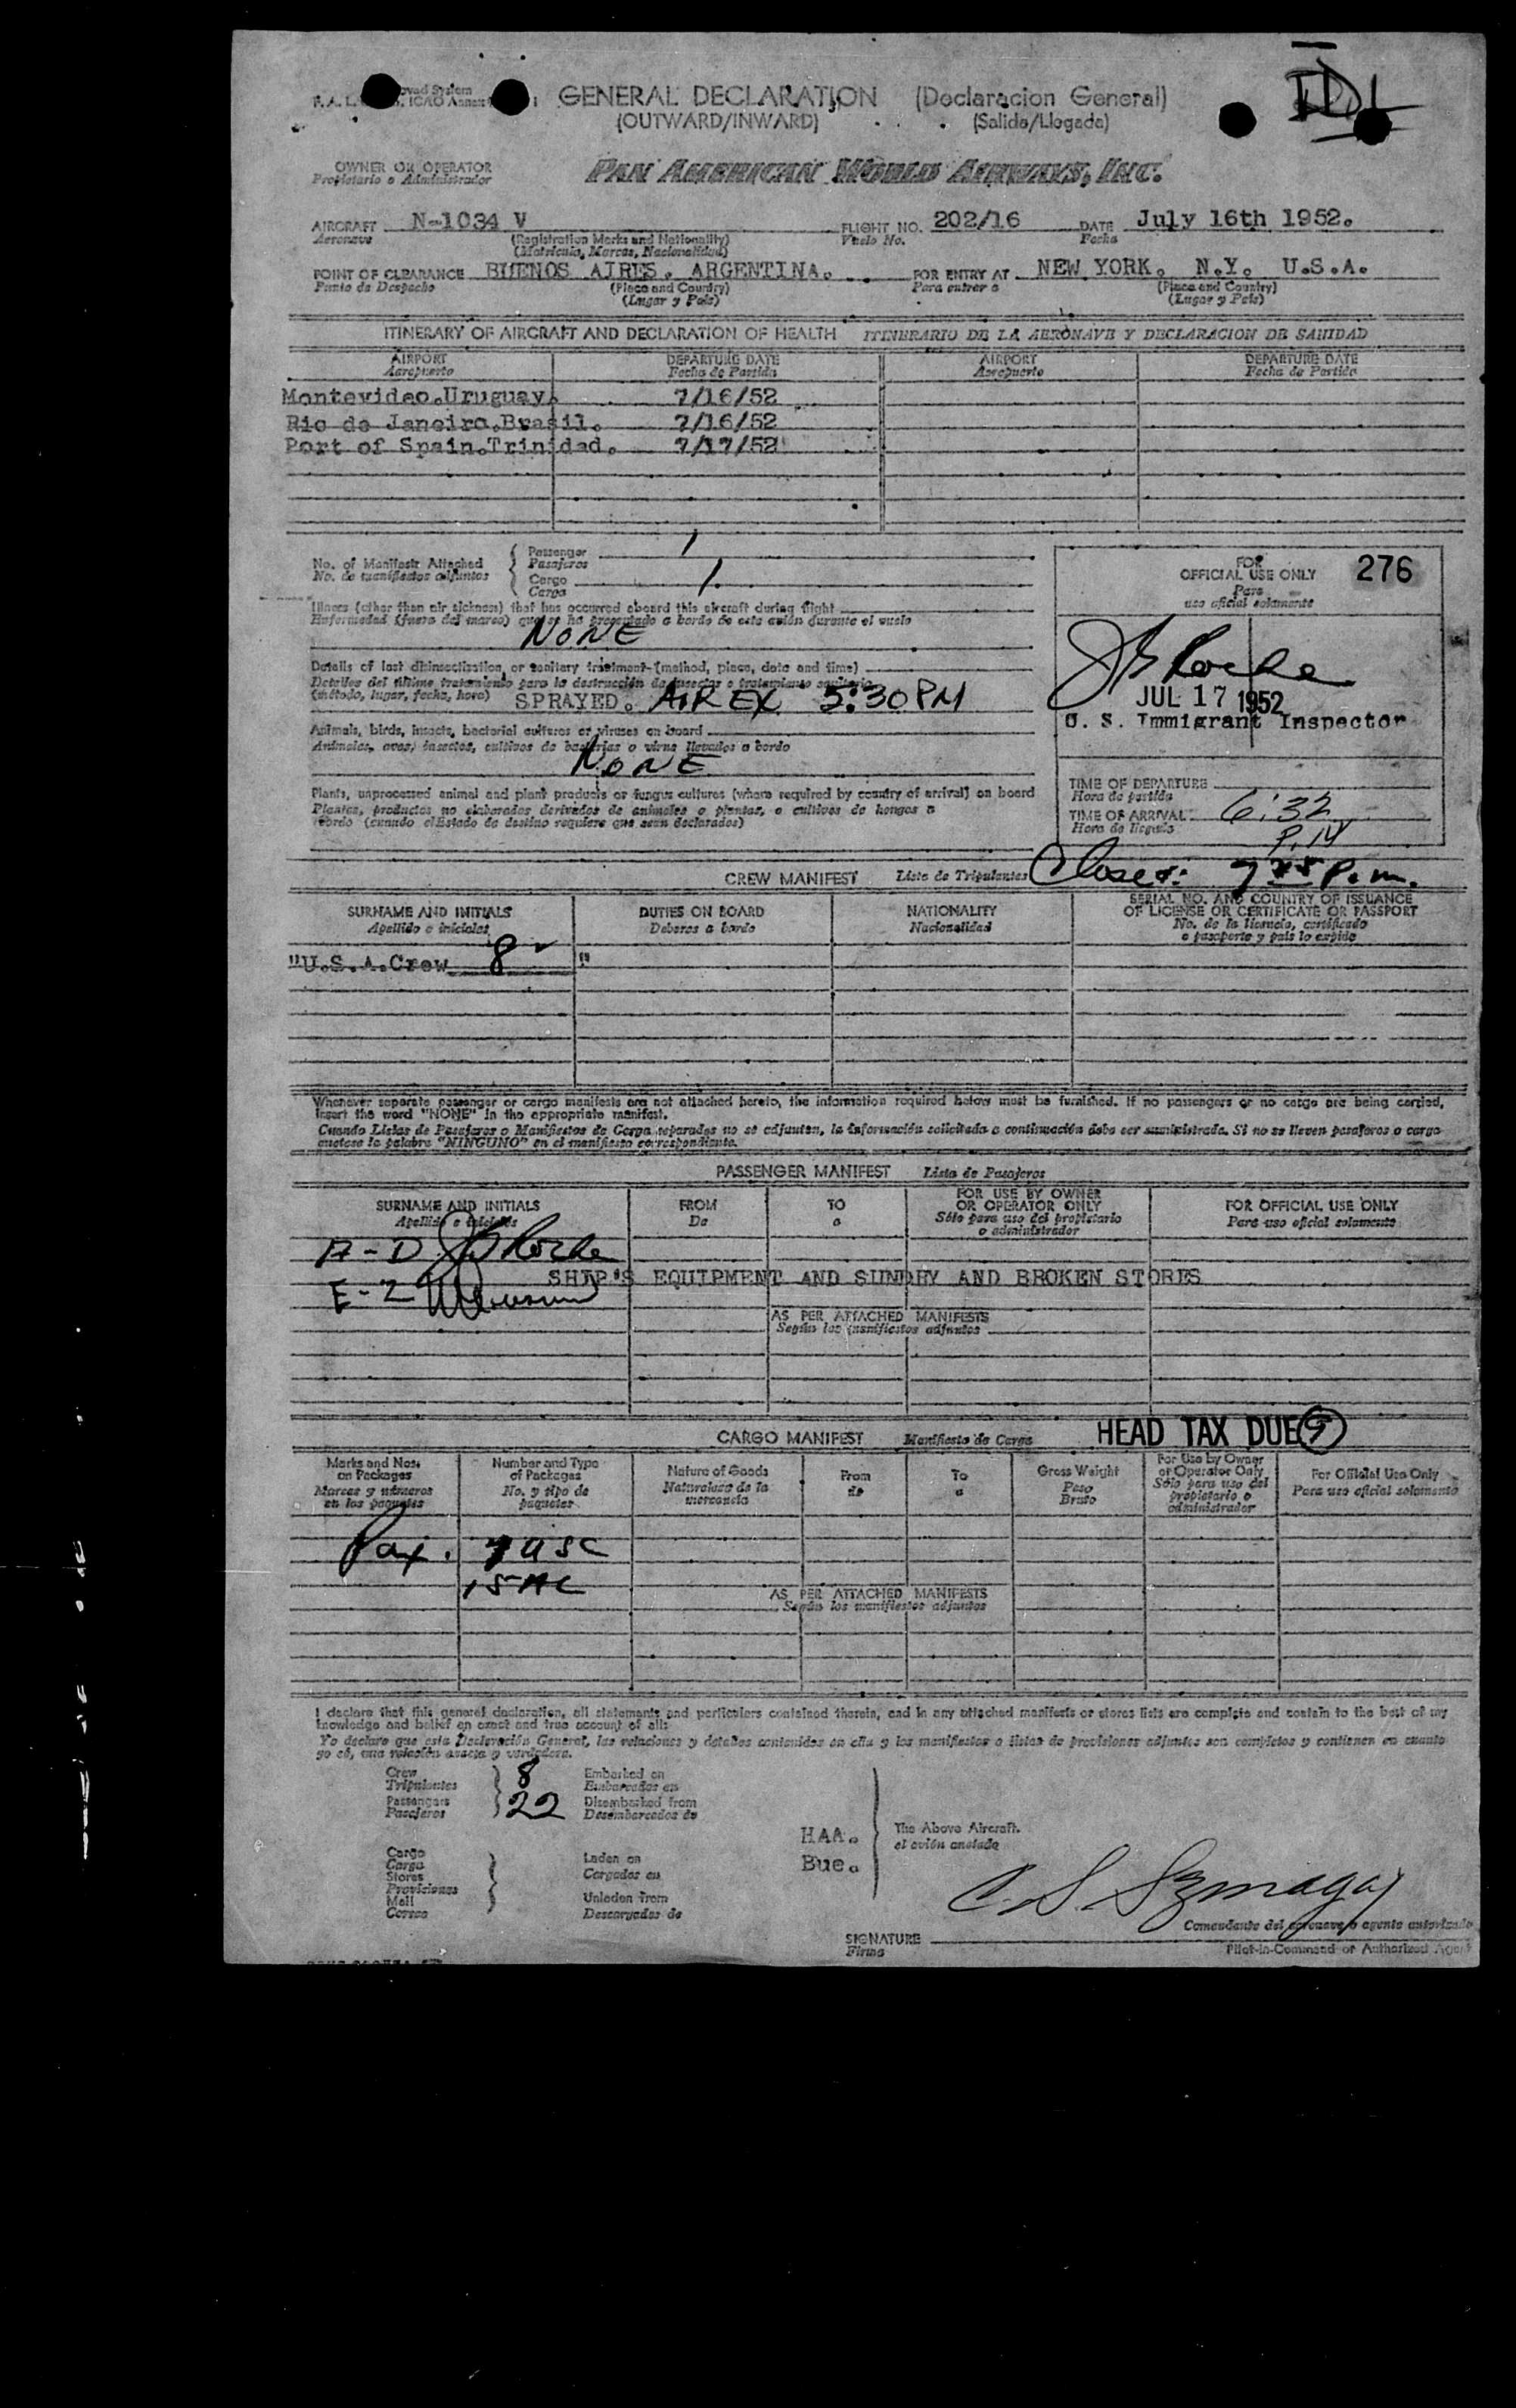 GENERAL DECLARATION (Declaracion General)
(OUTWARD/INWARD) (Salida/Llegada)
IDL
OWNER OR OPERATOR
Propietario o Administrador
PAN AMERICAN WORLD AIRWAYS, INC.
AIRCRAFT N-1034 V FLIGHT NO. 202/16 DATE July 16th 1952.
Aeronave (Registration Marks and Nationality) Vuelo No. Fecha
(Matricula, Marcas, Nacionalidad)
POINT OF CLEARANCE BUENOS AIRES. ARGENTINA. FOR ENTRY AT NEW YORK. N.Y. U.S.A.
Punto de Despacho (Place and Country) Para entrar a (Place and Country)
(Lugar y País) (Lugar y País)
ITINERARY OF AIRCRAFT AND DECLARATION OF HEALTH ITINERARIO DE LA AERONAVE Y DECLARACION DE SANIDAD
AIRPORT DEPARTURE DATE AIRPORT DEPARTURE DATE
Aeropuerto Fecha de Partida Aeropuerto Fecha de Partida
Montevideo.Uruguay. 7/16/52
Rio de Janeiro.Brasil. 7/16/52
Port of Spain.Trinidad. 7/17/52
No. of Manifests Attached Passenger 1
No. de manifiestos adjuntos Pasajeros
Cargo 1.
Carga
FOR
OFFICIAL USE ONLY 276
Para
uso oficial solamente
Illness (other than air sickness) that has occurred aboard this aircraft during flight
Enfermedad (fuera del mareo) que se ha presentado a bordo de este avión durante el vuelo
NONE
Details of last disinsectization, or sanitary treatment-(method, place, date and time)
Detalles del último tratamiento para la destrucción de insectos o tratamiento sanitario
(método, lugar, fecha, hora) SPRAYED. AIR EX 5:30 PM
J B Roche
JUL 17 1952
U. S. Immigrant Inspector
Animals, birds, insects, bacterial cultures or viruses on board
Animales, aves, insectos, cultivos de bacterias o virus llevados a bordo
NONE
Plants, unprocessed animal and plant products or fungus cultures (where required by country of arrival) on board
Plantas, productos no elaborados derivados de animales o plantas, o cultivos de hongos a
bordo (cuando el Estado de destino requiere que sean declarados)
TIME OF DEPARTURE
Hora de partida
TIME OF ARRIVAL 6:32
Hora de llegada P.M
CREW MANIFEST Lista de Tripulantes Closed: P.m.
SURNAME AND INITIALS DUTIES ON BOARD NATIONALITY SERIAL NO. AND COUNTRY OF ISSUANCE
OF LICENSE OR CERTIFICATE OR PASSPORT
Apellido e iniciales Deberes a bordo Nacionalidad No. de la licencia, certificado
o pasaporte y país lo expide
"U.S.A.Crew 8 "
Whenever separate passenger or cargo manifests are not attached hereto, the information required below must be furnished. If no passengers or no cargo are being carried,
insert the word "NONE" in the appropriate manifest.
Cuando Listas de Pasajeros o Manifiestos de Carga separados no se adjunten, la información solicitada a continuación debe ser suministrada. Si no se lleven pasajeros o carga
anotese la palabra "NINGUNO" en el manifiesto correspondiente.
PASSENGER MANIFEST Lista de Pasajeros
SURNAME AND INITIALS FROM TO FOR USE BY OWNER FOR OFFICIAL USE ONLY
OR OPERATOR ONLY
Apellido e iniciales De a Sólo para uso del propietario Para uso oficial solamente
o administrador
A-D J B Roche
E-Z
SHIP'S EQUIPMENT AND SUNDRY AND BROKEN STORES
AS PER ATTACHED MANIFESTS
Según los manifiestos adjuntos
CARGO MANIFEST Manifiesto de Carga HEAD TAX DUE 5
Marks and Nos. on Packages Number and Type of Packages Nature of Goods From To Gross Weight For Use by Owner or Operator Only For Official Use Only
Marcas y números en los paquetes No. y tipo de paquetes Naturaleza de la mercancía de a Peso Bruto Sólo para uso del propietario o administrador Para uso oficial solamente
Pax. 7 USC
15 AC
AS PER ATTACHED MANIFESTS
Según los manifiestos adjuntos
I declare that this general declaration, all statements and particulars contained therein, and in any attached manifests or stores lists are complete and contain to the best of my
knowledge and belief an exact and true account of all:
Yo declaro que esta Declaración General, las relaciones y detalles contenidos en ella y los manifiestos o listas de provisiones adjuntos son completos y contienen en cuanto
yo sé, una relación exacta y verdadera.
Crew 8 Embarked on
Tripulantes Embarcados en
Passengers 22 Disembarked from
Pasajeros Desembarcados de
HAA. The Above Aircraft.
Bue. el avión anotado
Cargo
Carga Laden on
Stores Cargados en
Provisiones
Mail Unladen from
Correo Descargados de
SIGNATURE
Firma
Comandante del aeronave o agente autorizado
Pilot-in-Command or Authorized Agent